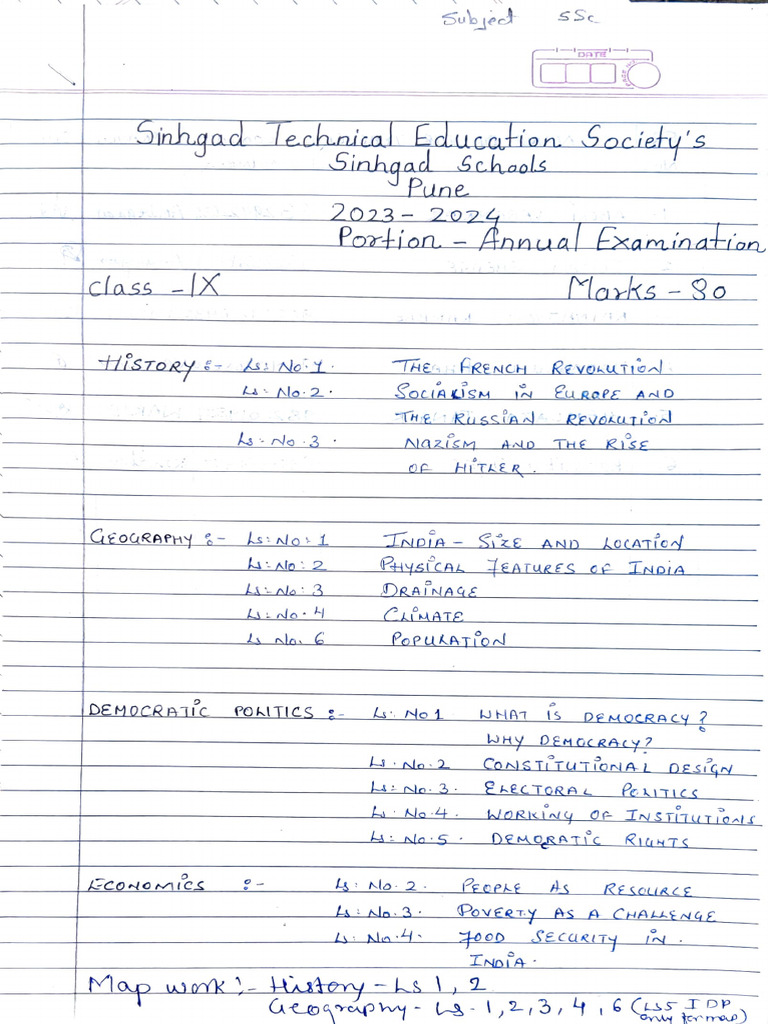 Subject SSc
DATE
Sinhgad Technical Education Society's
Sinhgad Schools
Pune
2023-2024
Portion - Annual Examination
class - IX Marks - 80
HISTORY :- Ls: No. 1. THE FRENCH REVOLUTION
Ls: No. 2. SOCIALISM IN EUROPE AND
THE RUSSIAN REVOLUTION
Ls: No. 3. NAZISM AND THE RISE
OF HITLER.
GEOGRAPHY :- Ls: No: 1 INDIA - SIZE AND LOCATION
Ls: No: 2 PHYSICAL FEATURES OF INDIA
Ls: No: 3 DRAINAGE
Ls: No. 4 CLIMATE
Ls No. 6 POPULATION
DEMOCRATIC POLITICS :- Ls: No 1 WHAT IS DEMOCRACY?
WHY DEMOCRACY?
Ls. No. 2 CONSTITUTIONAL DESIGN
Ls: No. 3. ELECTORAL POLITICS
Ls. No. 4. WORKING OF INSTITUTIONS
Ls: No. 5. DEMOCRATIC RIGHTS
ECONOMICS :- Ls: No. 2. PEOPLE AS RESOURCE
Ls: No. 3. POVERTY AS A CHALLENGE
Ls: No. 4. FOOD SECURITY IN.
INDIA.
Map work :- History - Ls 1, 2
Geography - Ls. 1, 2, 3, 4, 6 (LS5 IDP
only for map)